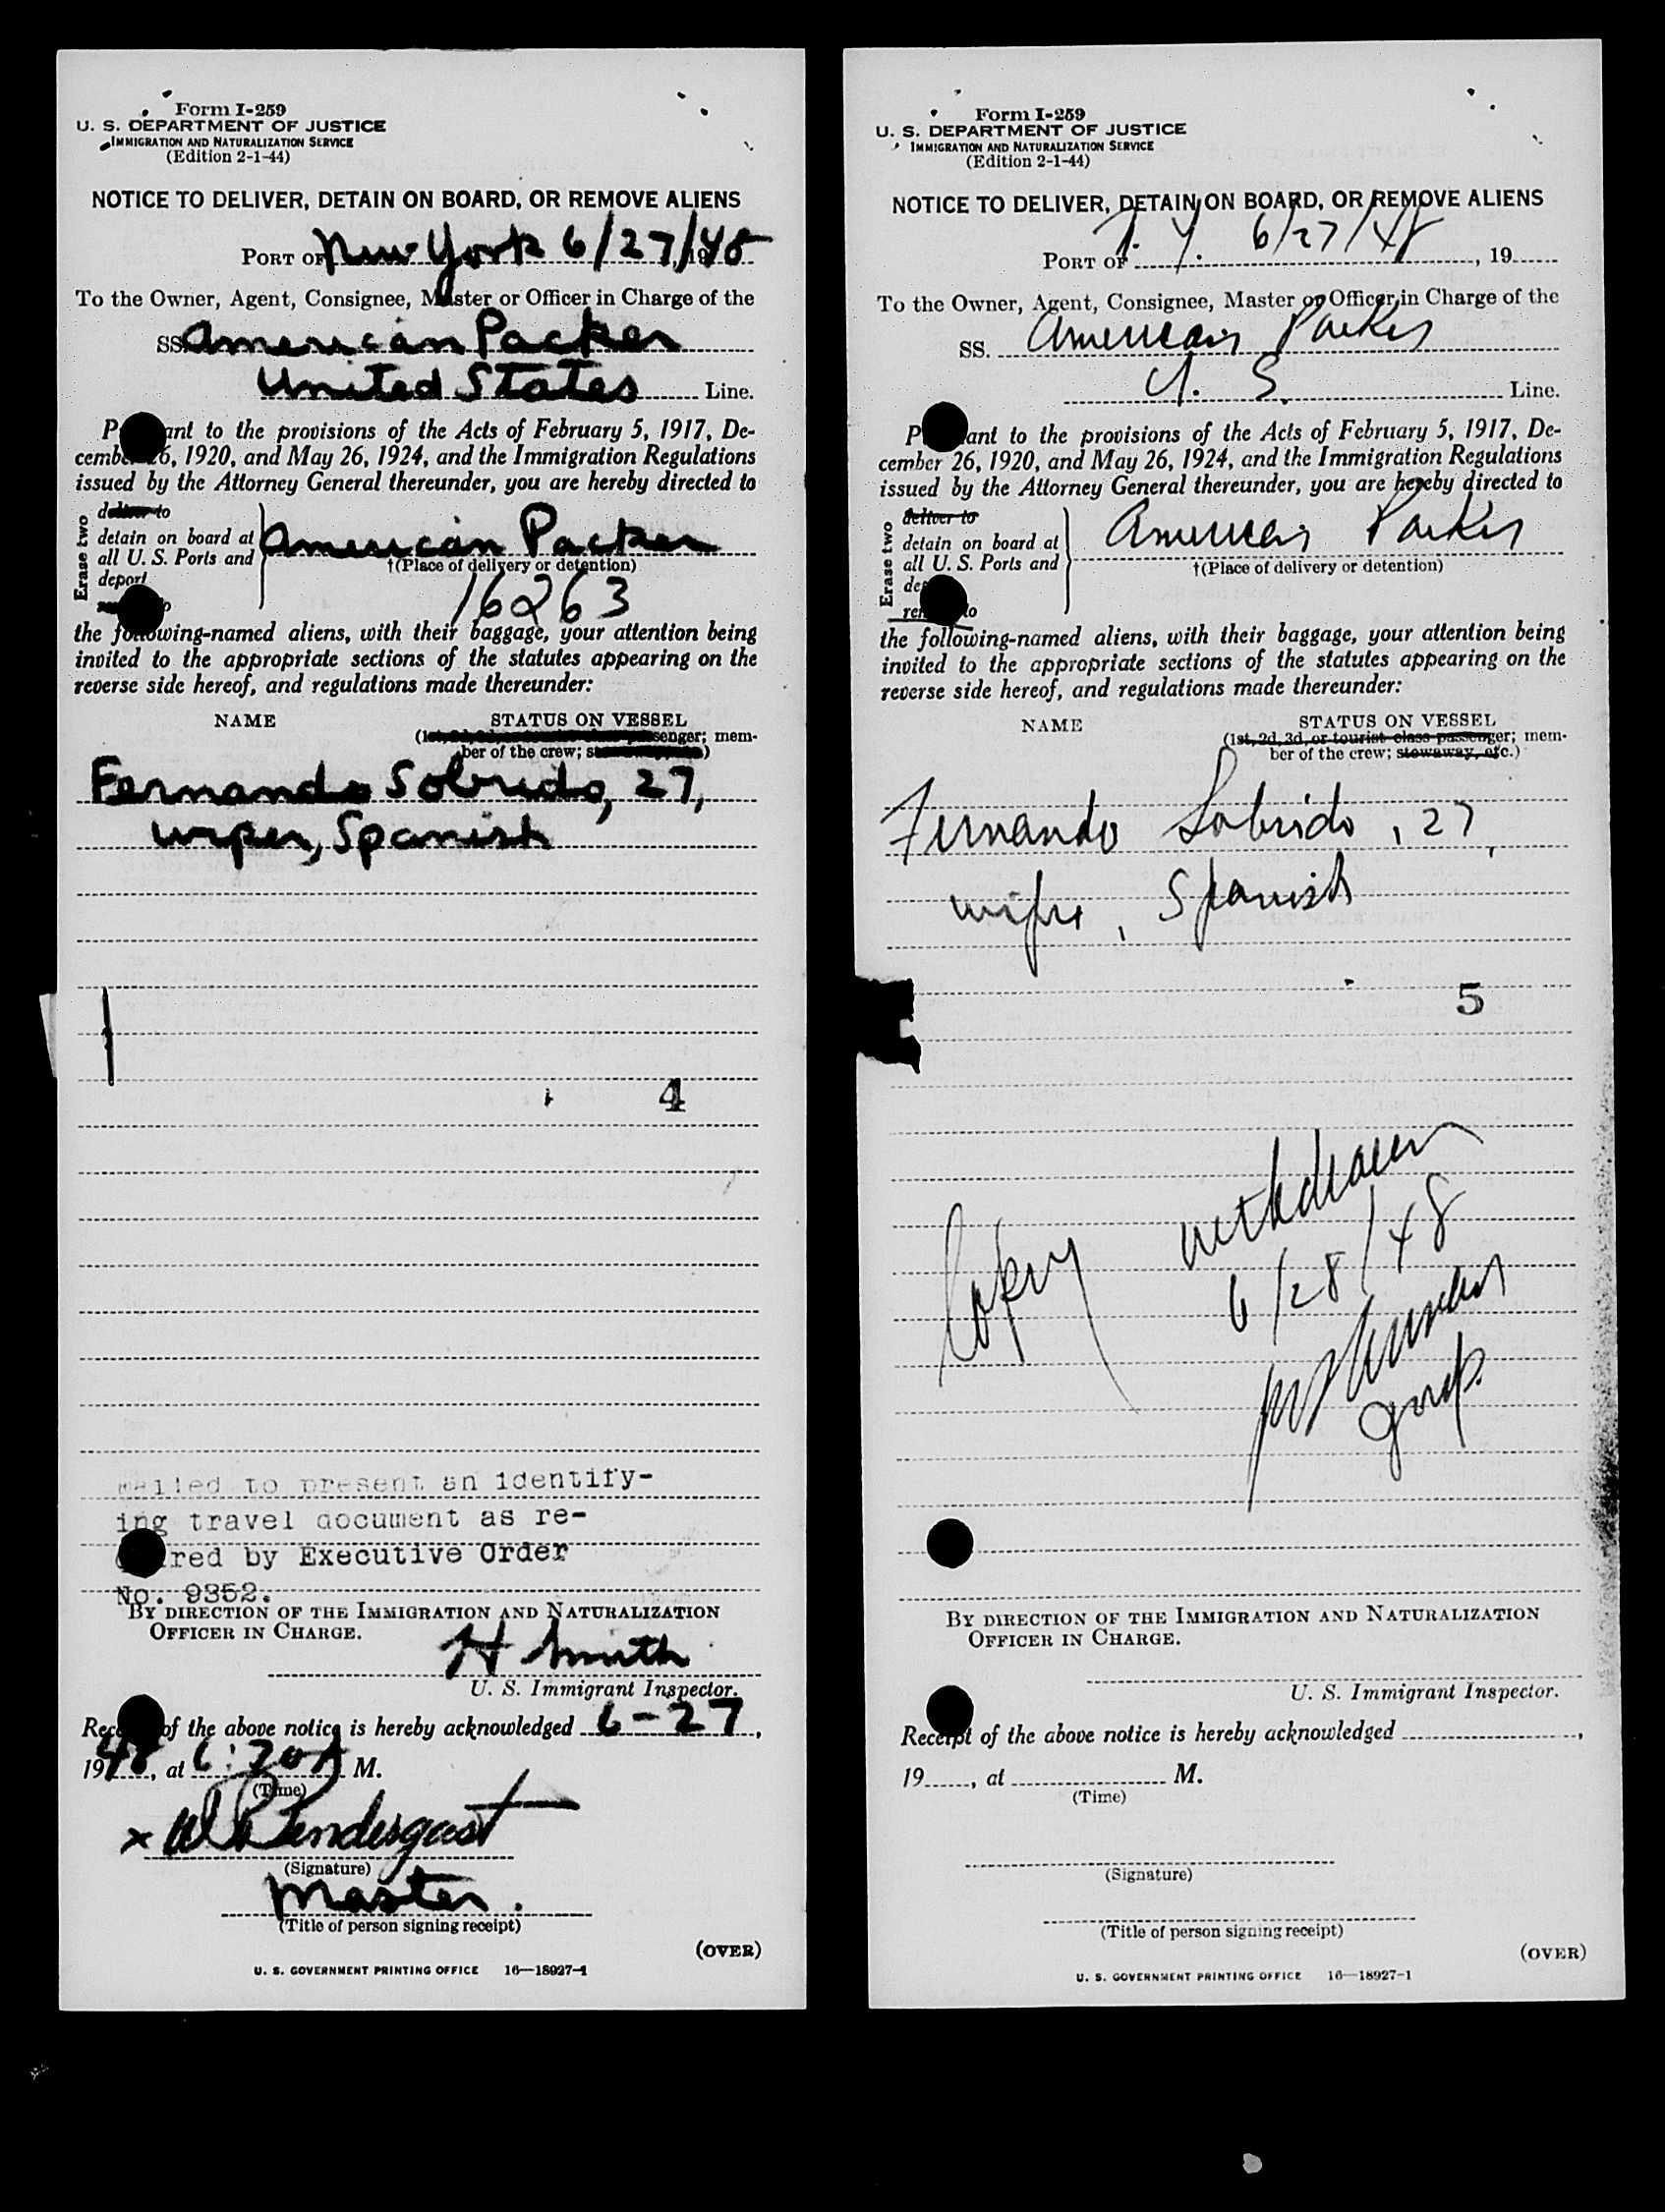 Form I-259
U. S. DEPARTMENT OF JUSTICE
IMMIGRATION AND NATURALIZATION SERVICE
(Edition 2-1-44)
NOTICE TO DELIVER, DETAIN ON BOARD, OR REMOVE ALIENS
PORT OF New York 6/27/48
To the Owner, Agent, Consignee, Master or Officer in Charge of the
SS. American Packer
United States Line.
P ant to the provisions of the Acts of February 5, 1917, De-
cember 26, 1920, and May 26, 1924, and the Immigration Regulations
issued by the Attorney General thereunder, you are hereby directed to
Erase two
deliver to
detain on board at
all U. S. Ports and
deport
American Packer
†(Place of delivery or detention)
16263
the following-named aliens, with their baggage, your attention being
invited to the appropriate sections of the statutes appearing on the
reverse side hereof, and regulations made thereunder:
NAME STATUS ON VESSEL
senger; mem-
ber of the crew; s )
Fernando Sobrido, 27,
wiper, Spanish
4
to present an identify-
ing travel document as re-
red by Executive Order
No. 9352.
BY DIRECTION OF THE IMMIGRATION AND NATURALIZATION
OFFICER IN CHARGE.
H Smith
U. S. Immigrant Inspector.
Rece of the above notice is hereby acknowledged 6-27,
1948, at 6:20A M.
(Time)
x Pendergast
(Signature)
Master.
(Title of person signing receipt)
(OVER)
U. S. GOVERNMENT PRINTING OFFICE 16—18927-1
Form I-259
U. S. DEPARTMENT OF JUSTICE
IMMIGRATION AND NATURALIZATION SERVICE
(Edition 2-1-44)
NOTICE TO DELIVER, DETAIN ON BOARD, OR REMOVE ALIENS
PORT OF N. Y. 6/27/48, 19
To the Owner, Agent, Consignee, Master or Officer in Charge of the
SS. American Packer
U. S. Line.
P ant to the provisions of the Acts of February 5, 1917, De-
cember 26, 1920, and May 26, 1924, and the Immigration Regulations
issued by the Attorney General thereunder, you are hereby directed to
Erase two
deliver to
detain on board at
all U. S. Ports and
de
re to
American Packer
†(Place of delivery or detention)
the following-named aliens, with their baggage, your attention being
invited to the appropriate sections of the statutes appearing on the
reverse side hereof, and regulations made thereunder:
NAME STATUS ON VESSEL
(1st, 2d, 3d, or tourist class passenger; mem-
ber of the crew; stowaway, etc.)
Fernando Sobrido, 27,
wiper, Spanish
5
Copy withdrawn
6/28/48
BY DIRECTION OF THE IMMIGRATION AND NATURALIZATION
OFFICER IN CHARGE.
U. S. Immigrant Inspector.
Receipt of the above notice is hereby acknowledged ,
19 , at M.
(Time)
(Signature)
(Title of person signing receipt)
(OVER)
U. S. GOVERNMENT PRINTING OFFICE 16—18927-1